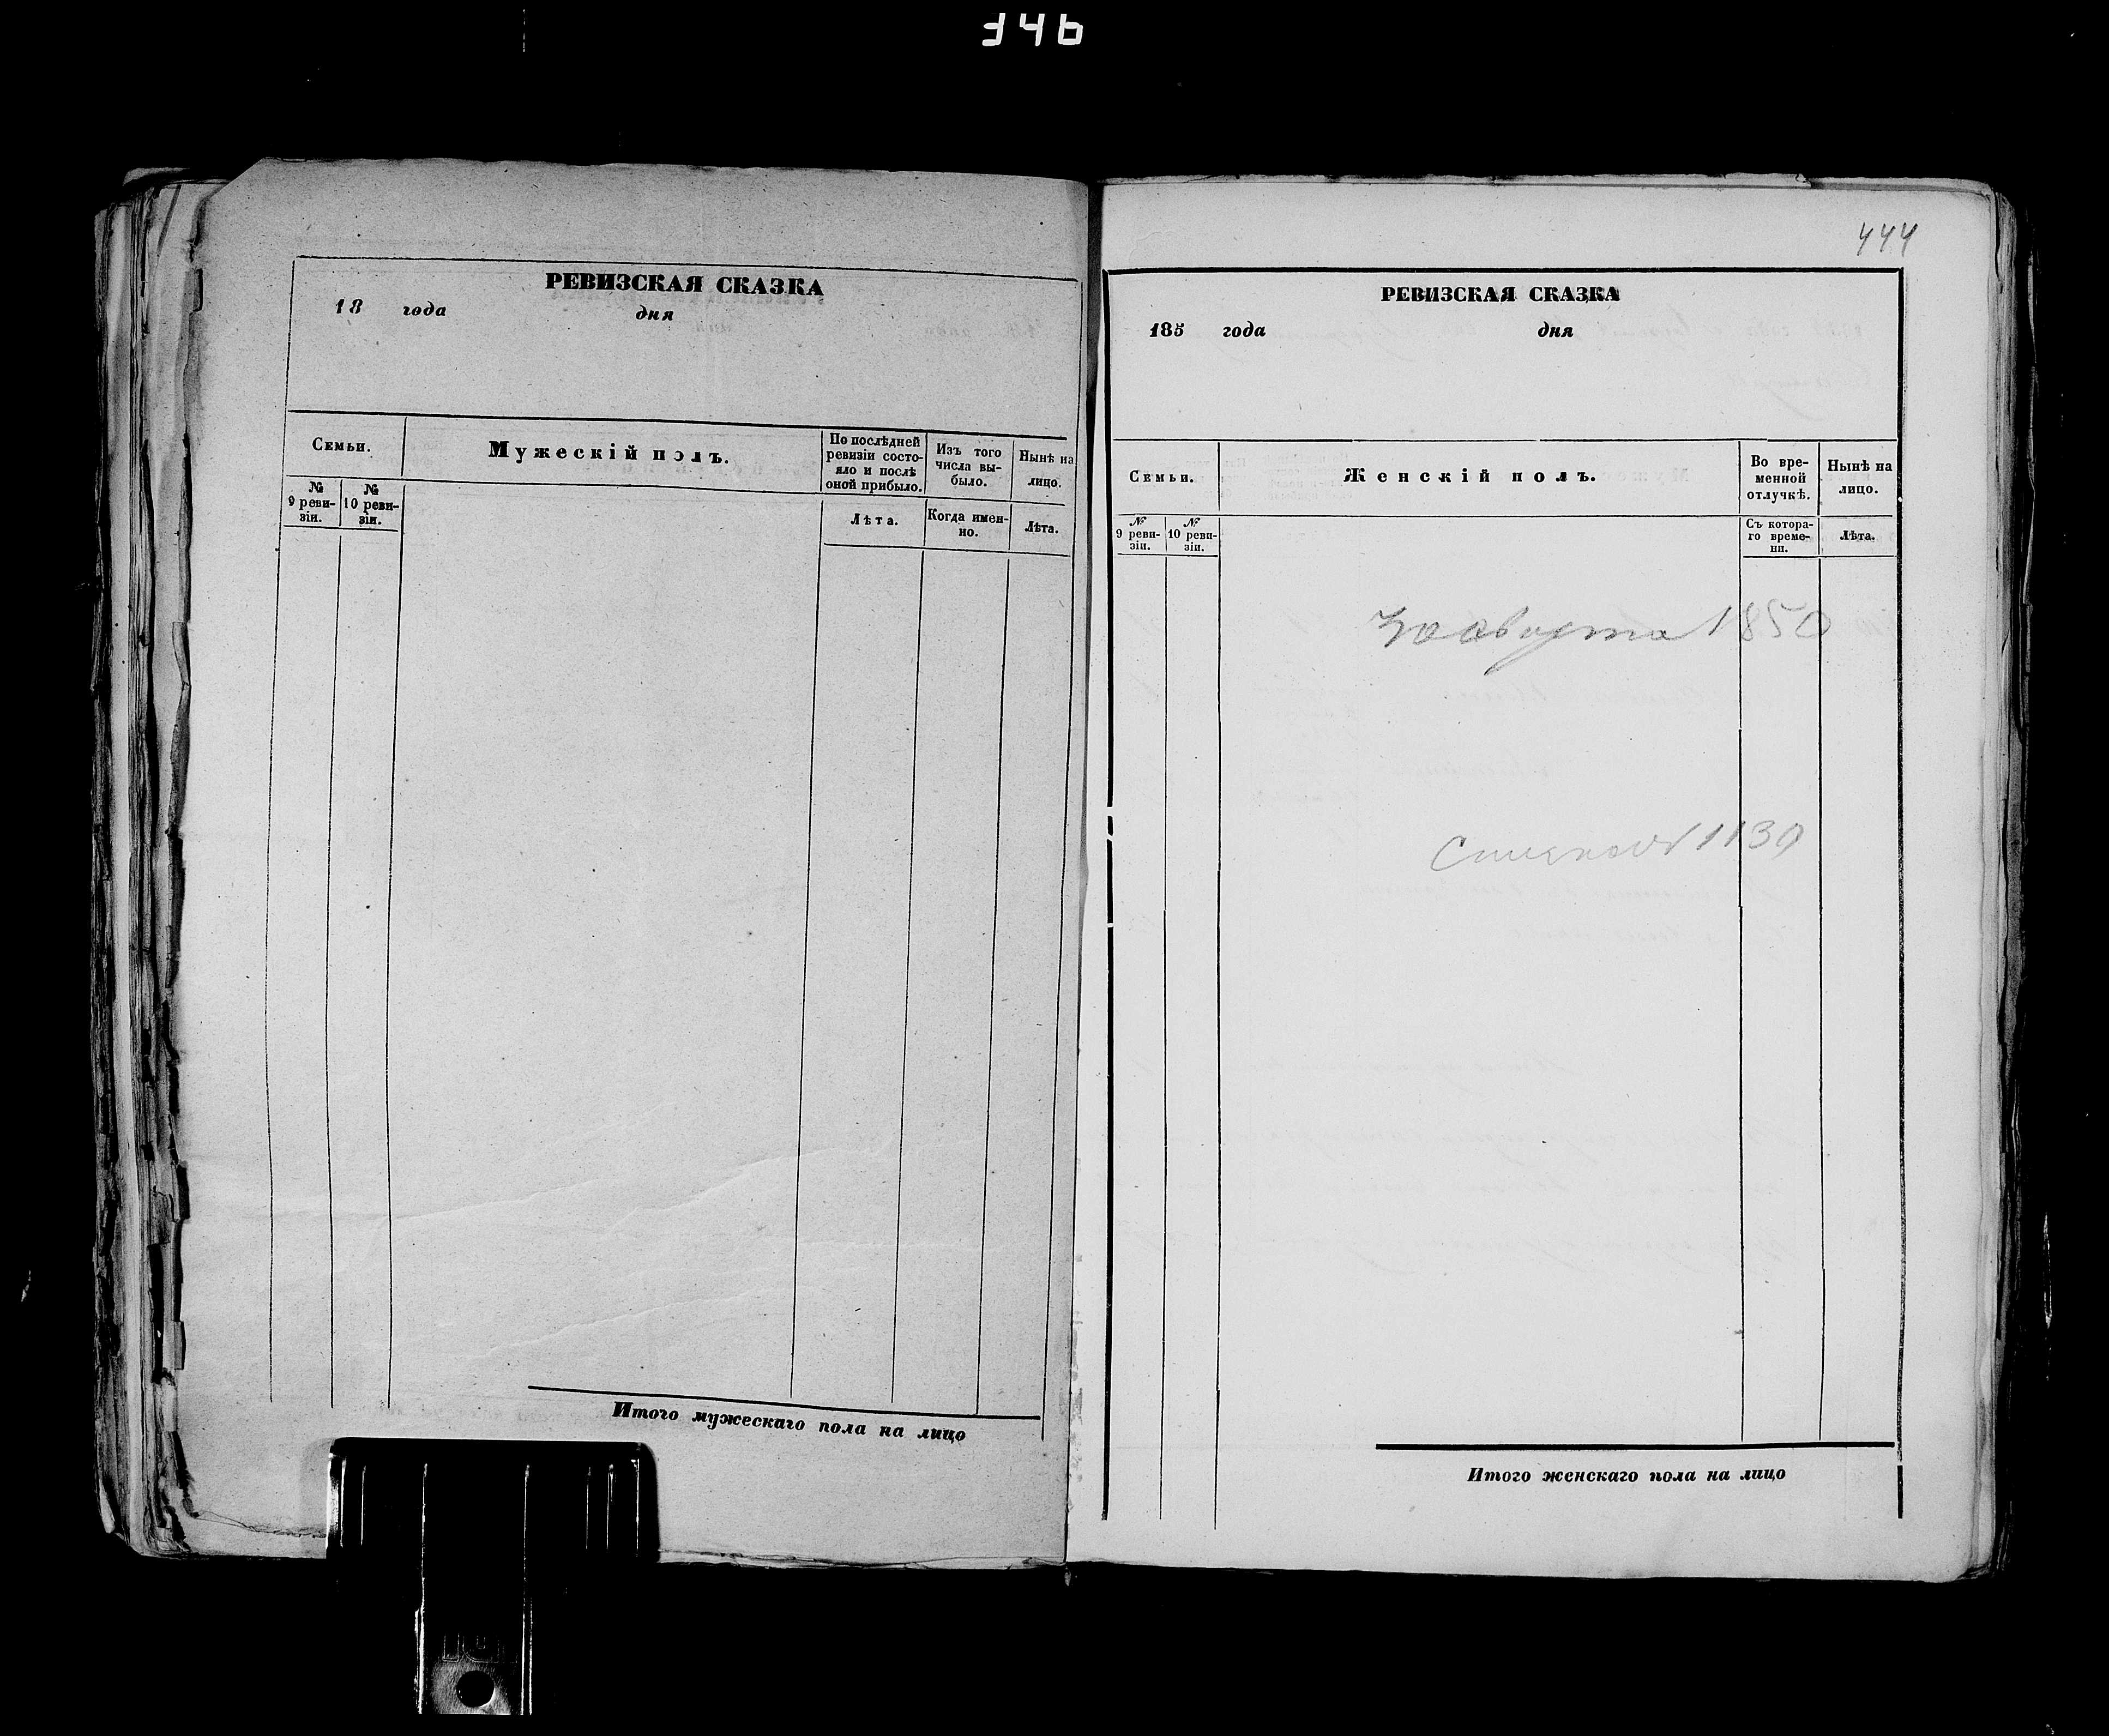 346
444
РЕВИЗСКАЯ СКАЗКА
18 года дня
Семьи.
Мужескій полъ.
По послѣдней ревизіи состо-
яло и послѣ оной прибыло.
Изъ того числа вы-
было.
Нынѣ на лицо.
№ 9 реви-
зіи.
№ 10 реви-
зіи.
Лѣта.
Когда имен-
но.
Лѣта.
Итого мужескаго пола на лицо
РЕВИЗСКАЯ СКАЗКА
185 года дня
Семьи.
Женскій полъ.
Во вре-
менной
отлучкѣ.
Нынѣ на
лицо.
№ 9 реви-
зіи.
№ 10 реви-
зіи.
Съ котора-
го време-
ни.
Лѣта.
августа 1850
1130
Итого женскаго пола на лицо